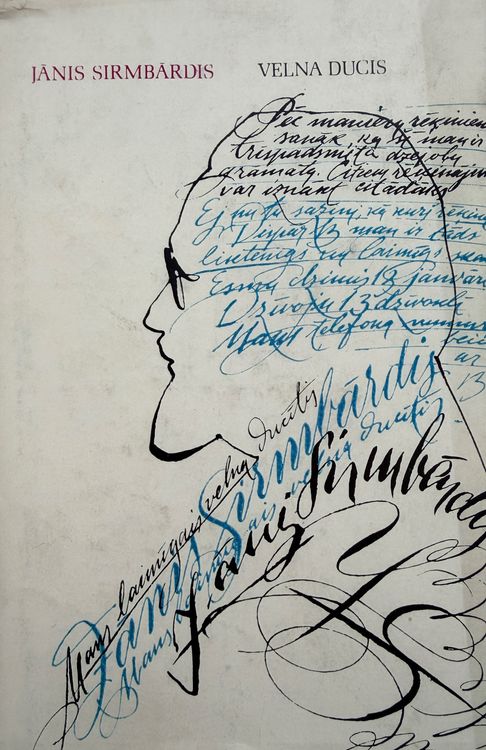 JĀNIS SIRMBĀRDIS VELNA DUCIS
Pēc maniem rēķiniem
sanāk, ka šī man ir
trīspadsmitā dzejoļu
grāmata. Citiem rēķinājumi
var iznākt citādāks
Ej nu tu sazini, kā kurš rēķina
Vispār 13 man ir tāds
liktenīgs un laimīgs
Esmu dzimis 13 janvārī
Dzīvoju 13 dzīvoklī
Mans telefona numurs
ar
13
Mans laimīgais velna ducītis
Jānis Sirmbārdis
Mans laimīgais velna ducītis
Jānis Sirmbārdis